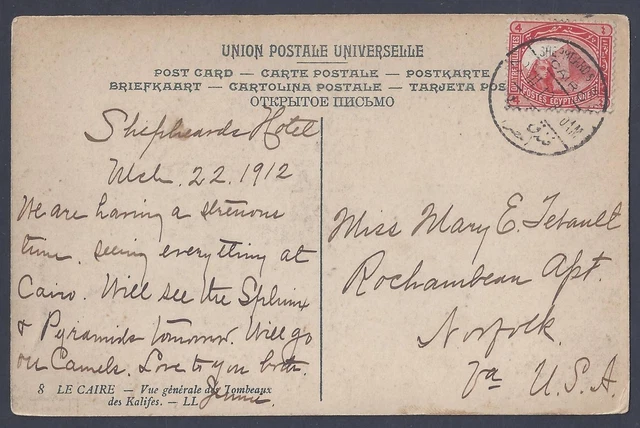 UNION POSTALE UNIVERSELLE
POST CARD — CARTE POSTALE — POSTKARTE
BRIEFKAART — CARTOLINA POSTALE — TARJETA POS
ОТКРЫТОЕ ПИСЬМО
4
1
POSTES EGYPTIENNES
Shepheards Hotel
Mch. 22. 1912
We are having a strenous
time. seeing everything at
Cairo. Will see the Sphinx
& Pyramids tomorrow. Will go
on Camels. Love to you both.
Jennie.
Miss Mary E. Tebault
Rochambeau Apt.
Norfolk.
Va U.S.A.
8 LE CAIRE — Vue générale des Tombeaux
des Kalifes. — LL